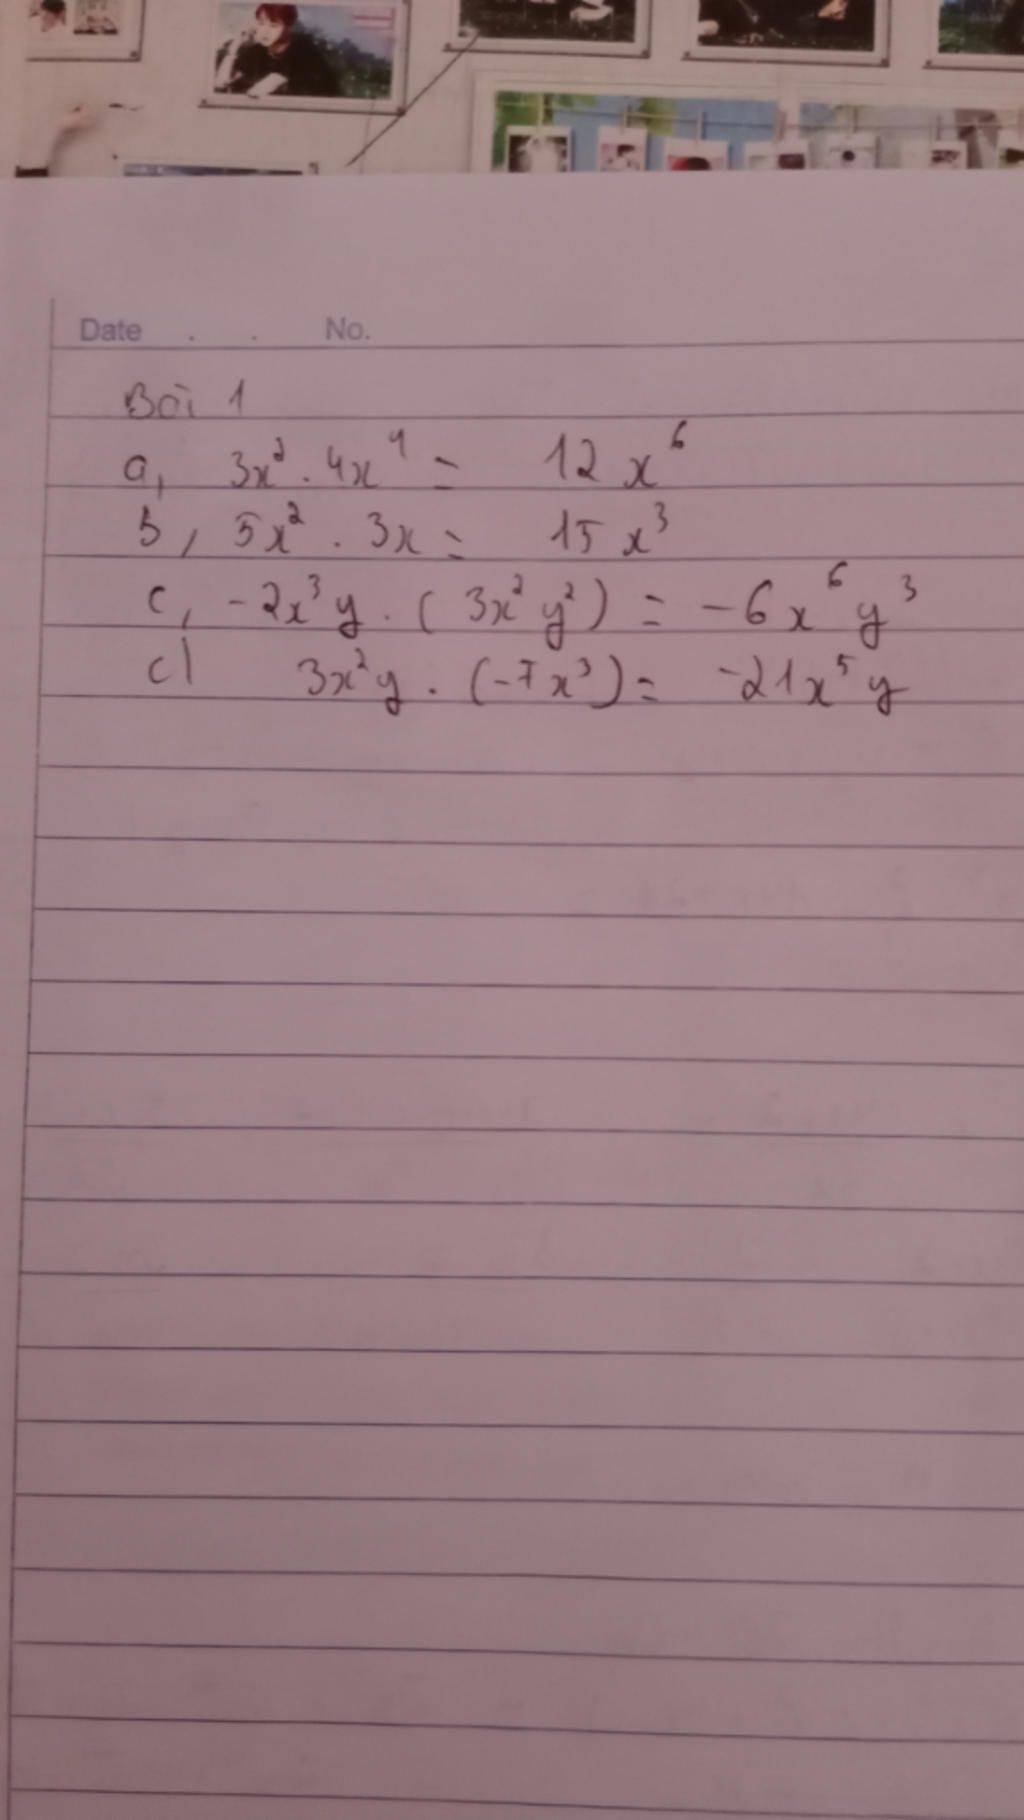 Date . . No.
Bài 1
a, 3x² . 4x⁴ = 12x⁶
b, 5x² . 3x = 15x³
c, -2x³y . (3x²y²) = -6x⁶y³
d 3x²y . (-7x³) = -21x⁵y